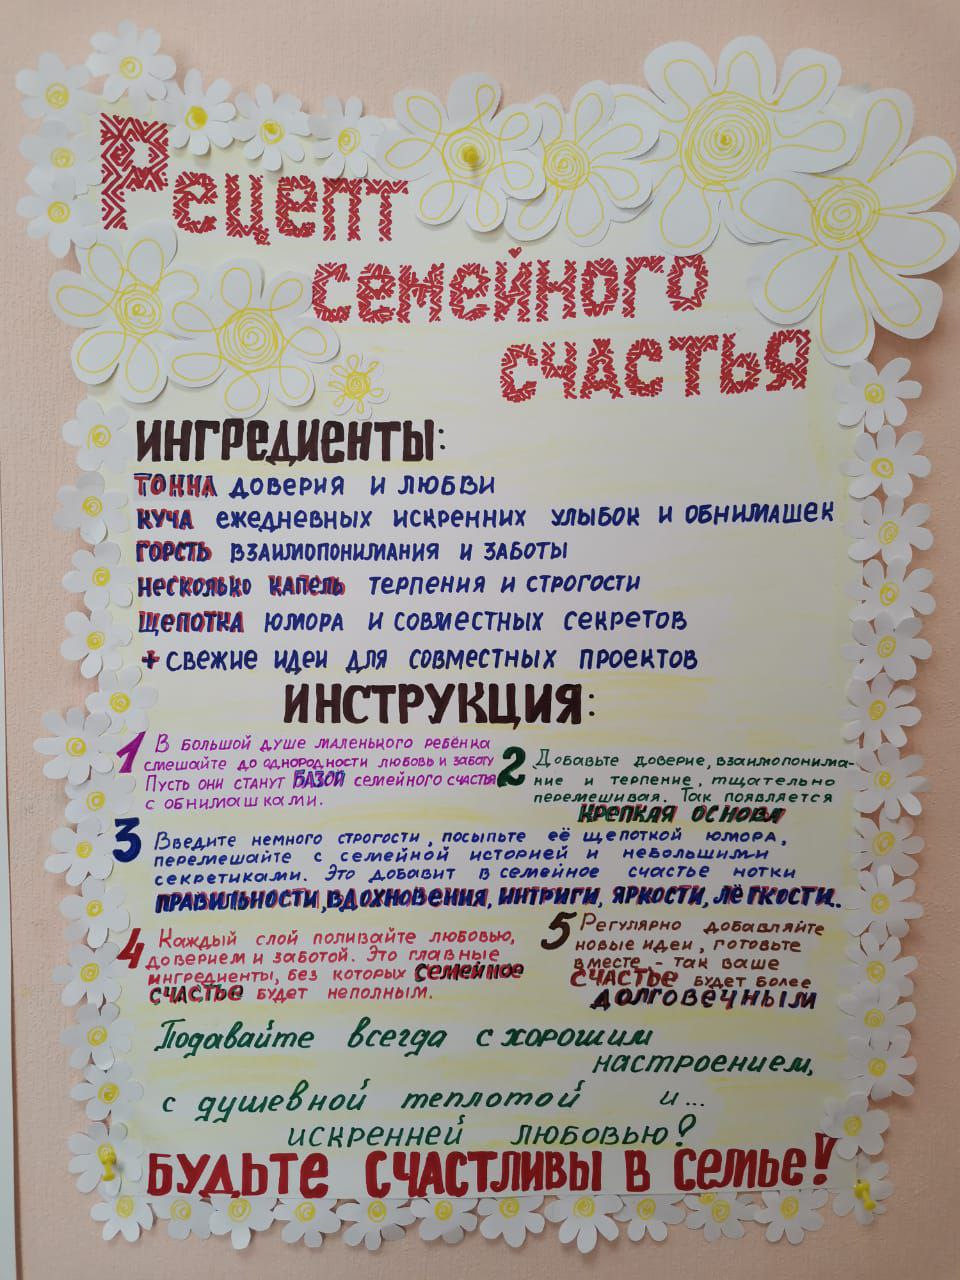 Рецепт
семейного
счастья
ИНГРЕДИЕНТЫ:
ТОННА ДОВЕРИЯ И ЛЮБВИ
КУЧА ЕЖЕДНЕВНЫХ ИСКРЕННИХ УЛЫБОК И ОБНИМАШЕК
ГОРСТЬ ВЗАИМОПОНИМАНИЯ И ЗАБОТЫ
НЕСКОЛЬКО КАПЕЛЬ ТЕРПЕНИЯ И СТРОГОСТИ
ЩЕПОТКА ЮМОРА И СОВМЕСТНЫХ СЕКРЕТОВ
+ СВЕЖИЕ ИДЕИ ДЛЯ СОВМЕСТНЫХ ПРОЕКТОВ
ИНСТРУКЦИЯ:
1 В большой душе маленького ребёнка
смешайте до однородности любовь и заботу
Пусть они станут БАЗОЙ семейного счастья
с обнимашками.
2 Добавьте доверие, взаимопонима-
ние и терпение, тщательно
перемешивая. Так появляется
КРЕПКАЯ ОСНОВА
3 Введите немного строгости, посыпьте её щепоткой юмора,
перемешайте с семейной историей и небольшими
секретиками. Это добавит в семейное счастье нотки
ПРАВИЛЬНОСТИ, ВДОХНОВЕНИЯ, ИНТРИГИ, ЯРКОСТИ, ЛЁГКОСТИ.
4 Каждый слой поливайте любовью,
доверием и заботой. Это главные
ингредиенты, без которых СЕМЕЙНОЕ
СЧАСТЬЕ будет неполным.
5 Регулярно добавляйте
новые идеи, готовьте
вместе - так ваше
СЧАСТЬЕ будет более
ДОЛГОВЕЧНЫМ
Подавайте всегда с хорошим
настроением,
с душевной теплотой и...
искренней любовью?
БУДЬТЕ СЧАСТЛИВЫ В СЕМЬЕ!